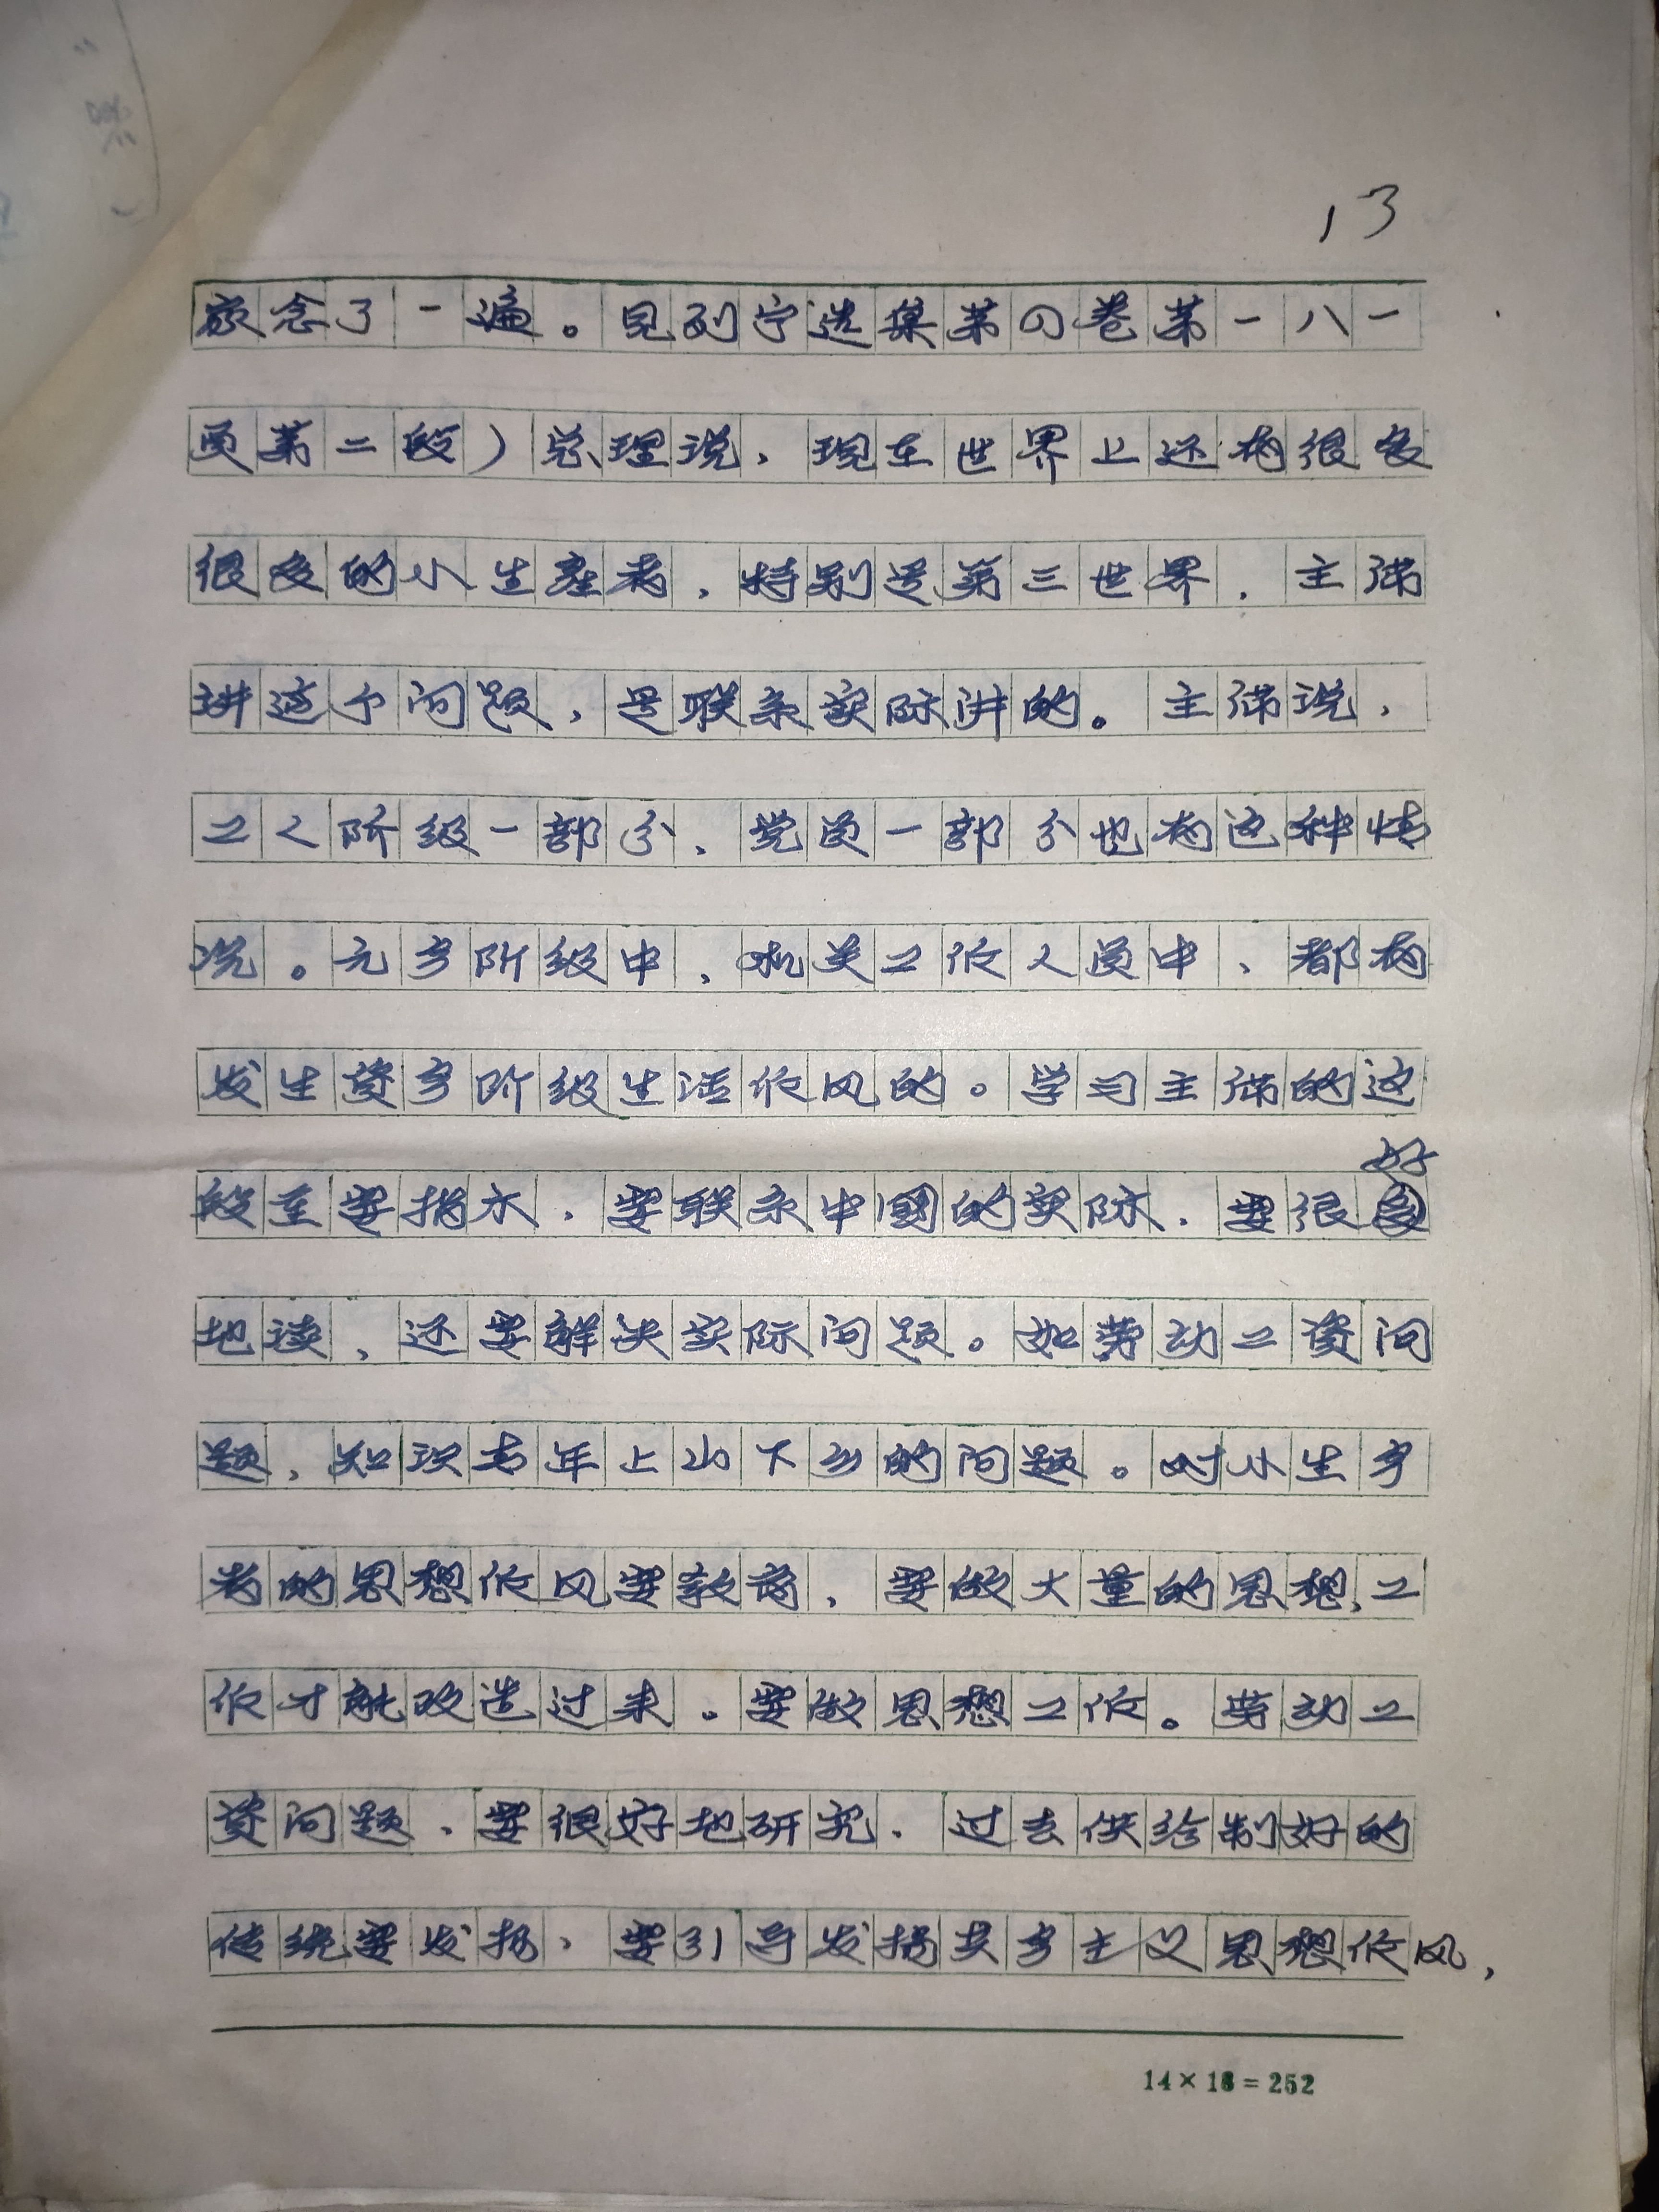 13
放念了一遍。见列宁选集第四卷第一八一
页第二段）总理说，现在世界上还有很多
很多的小生产者，特别是第三世界，主席
讲这个问题，是联系实际讲的。主席说，
工人阶级一部分、党员一部分也有这种情
况。无产阶级中，机关工作人员中、都有
发生资产阶级生活作风的。学习主席的这
好
段重要指示，要联系中國的实际，要很多
地读，还要解决实际问题。如劳动工资问
题，知识青年上山下乡的问题。对小生产
者的思想作风要教育，要做大量的思想、工
作才能改造过来。要做思想工作。劳动工
资问题、要很好地研究．过去供给制好的
传统要发扬，要引导发扬共产主义思想作风，
14×18=252